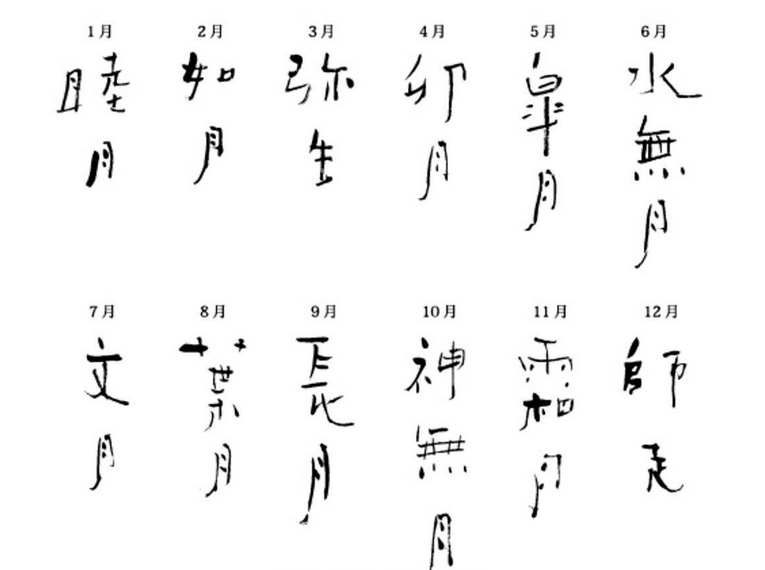 1月 2月 3月 4月 5月 6月
睦月 如月 弥生 卯月 皐月 水無月
7月 8月 9月 10月 11月 12月
文月 葉月 長月 神無月 霜月 師走